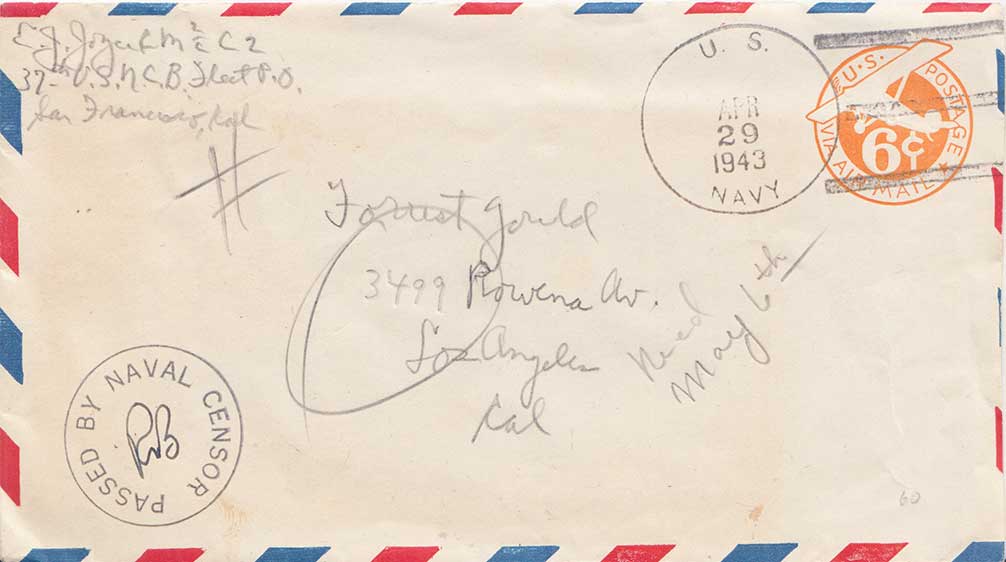 E. J. Joyce R M 2/c C 2
37th U. S. N. C. B. Fleet P. O.
San Francisco, Cal
U. S.
APR
29
1943
NAVY
U.S. POSTAGE
6¢
VIA AIR MAIL
Forrest Gould
3499 Rowena Av.
Los Angeles
Cal
Recd
May 6th
PASSED BY NAVAL CENSOR
60